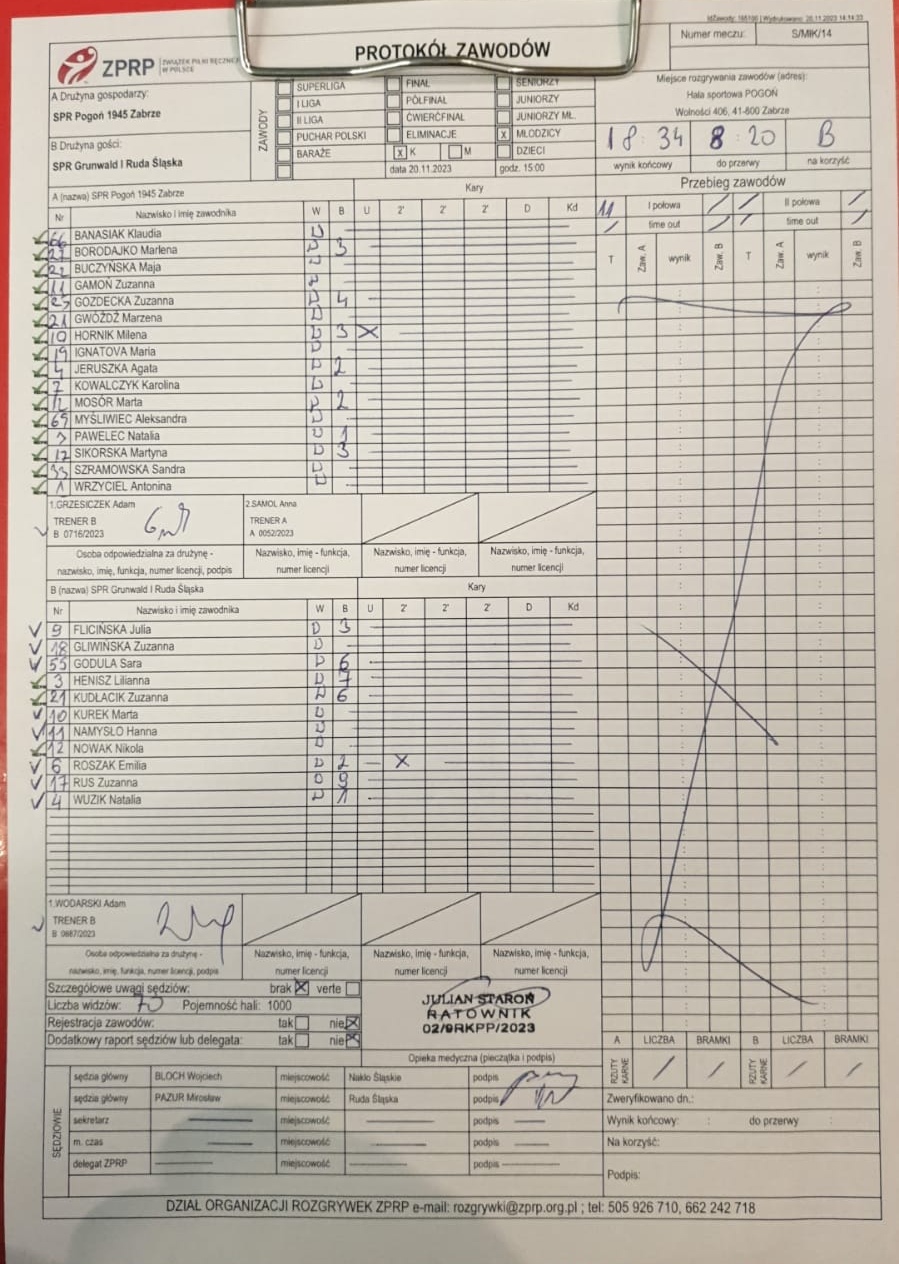 IdZawody: 165100 | Wydrukowano: 20.11.2023 14:14:33
Numer meczu: S/MłK/14
PROTOKÓŁ ZAWODÓW
ZPRP ZWIĄZEK PIŁKI RĘCZNEJ W POLSCE
A Drużyna gospodarzy:
SPR Pogoń 1945 Zabrze
B Drużyna gości:
SPR Grunwald I Ruda Śląska
ZAWODY
SUPERLIGA FINAŁ SENIORZY
I LIGA PÓŁFINAŁ JUNIORZY
II LIGA ĆWIERĆFINAŁ JUNIORZY MŁ.
PUCHAR POLSKI ELIMINACJE X MŁODZICY
BARAŻE X K M DZIECI
data 20.11.2023 godz. 15:00
Miejsce rozgrywania zawodów (adres):
Hala sportowa POGOŃ
Wolności 406, 41-800 Zabrze
18:34 8:20 B
wynik końcowy do przerwy na korzyść
A (nazwa) SPR Pogoń 1945 Zabrze Kary
Nr Nazwisko i imię zawodnika W B U 2' 2' 2' D Kd
66 BANASIAK Klaudia D
27 BORODAJKO Marlena D 3
22 BUCZYŃSKA Maja D
11 GAMOŃ Zuzanna D
25 GOZDECKA Zuzanna D 4
21 GWÓŹDŹ Marzena D
10 HORNIK Milena D 3 X
19 IGNATOVA Maria D
4 JERUSZKA Agata D 2
7 KOWALCZYK Karolina D
MOSÓR Marta D 2
69 MYŚLIWIEC Aleksandra D
PAWELEC Natalia D 1
17 SIKORSKA Martyna D 3
33 SZRAMOWSKA Sandra D
1 WRZYCIEL Antonina D
1.GRZESICZEK Adam 2.SAMOL Anna
TRENER B TRENER A
B 0716/2023 A 0052/2023
Osoba odpowiedzialna za drużynę - Nazwisko, imię - funkcja, Nazwisko, imię - funkcja, Nazwisko, imię - funkcja,
nazwisko, imię, funkcja, numer licencji, podpis numer licencji numer licencji numer licencji
B (nazwa) SPR Grunwald I Ruda Śląska Kary
Nr Nazwisko i imię zawodnika W B U 2' 2' 2' D Kd
9 FLICIŃSKA Julia D 3
18 GLIWIŃSKA Zuzanna D
55 GODULA Sara D 6
3 HENISZ Lilianna D 7
21 KUDŁACIK Zuzanna D 6
10 KUREK Marta D
11 NAMYSŁO Hanna D
12 NOWAK Nikola D
6 ROSZAK Emilia D 2 X
17 RUS Zuzanna D 9
4 WUZIK Natalia D 1
1.WODARSKI Adam
TRENER B
B 0687/2023
Osoba odpowiedzialna za drużynę - Nazwisko, imię - funkcja, Nazwisko, imię - funkcja, Nazwisko, imię - funkcja,
nazwisko, imię, funkcja, numer licencji, podpis numer licencji numer licencji numer licencji
Szczegółowe uwagi sędziów: brak X verte
Liczba widzów: 73 Pojemność hali: 1000
Rejestracja zawodów: tak nie X
Dodatkowy raport sędziów lub delegata: tak nie X
JULIAN STAROŃ
RATOWNIK
02/9RKPP/2023
Opieka medyczna (pieczątka i podpis)
SĘDZIOWIE
sędzia główny BLOCH Wojciech miejscowość Nakło Śląskie podpis
sędzia główny PAZUR Mirosław miejscowość Ruda Śląska podpis
sekretarz miejscowość podpis
m. czas miejscowość podpis
delegat ZPRP miejscowość podpis
Przebieg zawodów
I połowa II połowa
time out time out
T Zaw. A wynik Zaw. B T Zaw. A wynik Zaw. B
A LICZBA BRAMKI B LICZBA BRAMKI
RZUTY KARNE RZUTY KARNE
Zweryfikowano dn.:
Wynik końcowy: : do przerwy :
Na korzyść:
Podpis:
DZIAŁ ORGANIZACJI ROZGRYWEK ZPRP e-mail: rozgrywki@zprp.org.pl ; tel: 505 926 710, 662 242 718